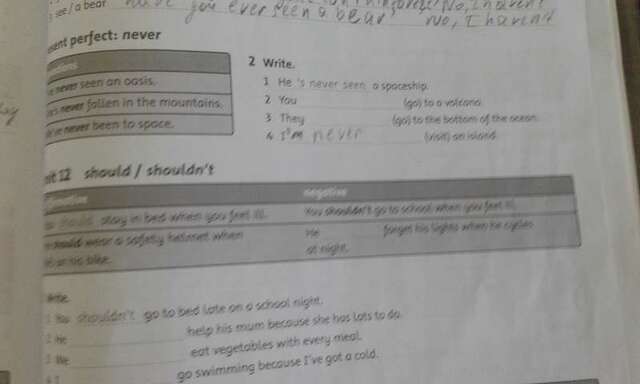 see / a bear have you ever seen a bear No, I haven't
present perfect: never
never seen an oasis.
never fallen in the mountains.
never been to space.
2 Write.
1 He 's never seen a spaceship.
2 You (go) to a volcano.
3 They (go) to the bottom of the ocean.
4 I'm never (visit) an island.
Unit 12 should / shouldn't
negative
should stay in bed when you feel ill. You shouldn't go to school when you feel ill.
should wear a safety helmet when He forget his lights when he cycles
his bike. at night.
Write.
1 You shouldn't go to bed late on a school night.
2 He help his mum because she has lots to do.
3 We eat vegetables with every meal.
4 I go swimming because I've got a cold.